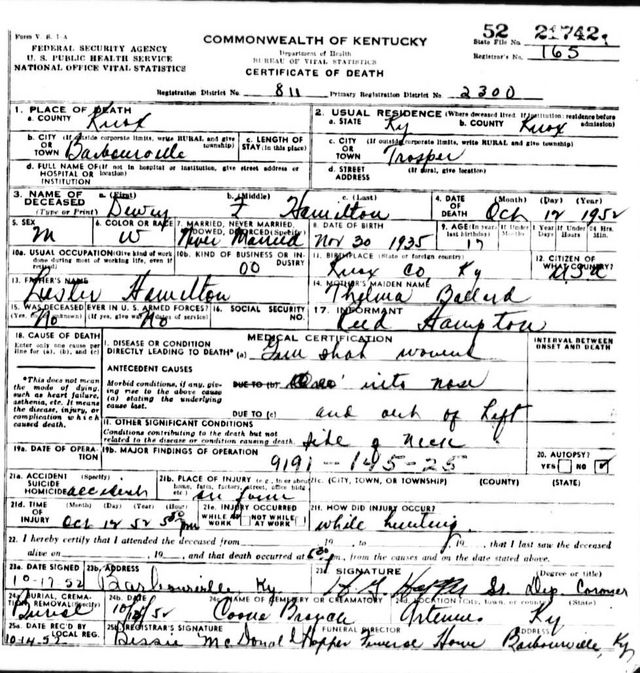 Form V. S. 1-A
FEDERAL SECURITY AGENCY
U. S. PUBLIC HEALTH SERVICE
NATIONAL OFFICE VITAL STATISTICS
COMMONWEALTH OF KENTUCKY
Department of Health
BUREAU OF VITAL STATISTICS
CERTIFICATE OF DEATH
52 21742
State File No.
Registrar's No. 165
Registration District No. 811 Primary Registration District No. 2300
1. PLACE OF DEATH
a. COUNTY Knox
2. USUAL RESIDENCE (Where deceased lived. If institution: residence before admission)
a. STATE Ky b. COUNTY Knox
b. CITY (If outside corporate limits, write RURAL and give township)
OR TOWN Barbourville
c. LENGTH OF STAY (in this place)
c. CITY (If outside corporate limits, write RURAL and give township)
OR TOWN Trosper
d. FULL NAME OF (If not in hospital or institution, give street address or location)
HOSPITAL OR INSTITUTION
d. STREET ADDRESS (If rural, give location)
3. NAME OF DECEASED (Type or Print)
a. (First) Dewey b. (Middle) c. (Last) Hamilton
4. DATE OF DEATH (Month) (Day) (Year) Oct 12 1952
5. SEX M
6. COLOR OR RACE W
7. MARRIED, NEVER MARRIED, WIDOWED, DIVORCED (Specify) Never Married
8. DATE OF BIRTH Nov 30 1935
9. AGE (In years last birthday) 17 If Under 1 Year Months Days If Under 24 Hrs. Hours Min.
10a. USUAL OCCUPATION (Give kind of work done during most of working life, even if retired)
10b. KIND OF BUSINESS OR INDUSTRY 00
11. BIRTHPLACE (State or foreign country) Knox Co Ky
12. CITIZEN OF WHAT COUNTRY? U.S.A
13. FATHER'S NAME Lester Hamilton
14. MOTHER'S MAIDEN NAME Thelma Ballard
15. WAS DECEASED EVER IN U. S. ARMED FORCES? (Yes, no, or unknown) (If yes, give war or dates of service) No No
16. SOCIAL SECURITY NO.
17. INFORMANT Reed Hampton
18. CAUSE OF DEATH
Enter only one cause per line for (a), (b), and (c)
MEDICAL CERTIFICATION
INTERVAL BETWEEN ONSET AND DEATH
I. DISEASE OR CONDITION DIRECTLY LEADING TO DEATH* (a) Gun shot wound
*This does not mean the mode of dying, such as heart failure, asthenia, etc. It means the disease, injury, or complication which caused death.
ANTECEDENT CAUSES
Morbid conditions, if any, giving rise to the above cause (a) stating the underlying cause last.
DUE TO (b) into nose
DUE TO (c) and out of left
II. OTHER SIGNIFICANT CONDITIONS
Conditions contributing to the death but not related to the disease or condition causing death.
side of neck
19a. DATE OF OPERATION
19b. MAJOR FINDINGS OF OPERATION
9191-145-25
20. AUTOPSY?
YES NO
21a. ACCIDENT SUICIDE HOMICIDE (Specify) accident
21b. PLACE OF INJURY (e.g., in or about home, farm, factory, street, office bldg., etc.) on farm
21c. (CITY, TOWN, OR TOWNSHIP) (COUNTY) (STATE)
21d. TIME OF INJURY (Month) (Day) (Year) (Hour) Oct 12 52 pm
21e. INJURY OCCURRED
WHILE AT WORK NOT WHILE AT WORK
21f. HOW DID INJURY OCCUR?
while hunting
22. I hereby certify that I attended the deceased from 19 to 19 that I last saw the deceased
alive on 19 and that death occurred at pm, from the causes and on the date stated above.
23a. DATE SIGNED 10-17-52
23b. ADDRESS Barbourville Ky
23c. SIGNATURE (Degree or title) Sr. Dep Coroner
24a. BURIAL, CREMATION, REMOVAL (Specify) Burial
24b. DATE
24c. NAME OF CEMETERY OR CREMATORY
24d. LOCATION (City, town, or county) (State) Artemus Ky
25a. DATE REC'D BY LOCAL REG. 10-14-52
25b. REGISTRAR'S SIGNATURE Bessie McDonald
FUNERAL DIRECTOR Hopper Funeral Home
ADDRESS Barbourville, Ky